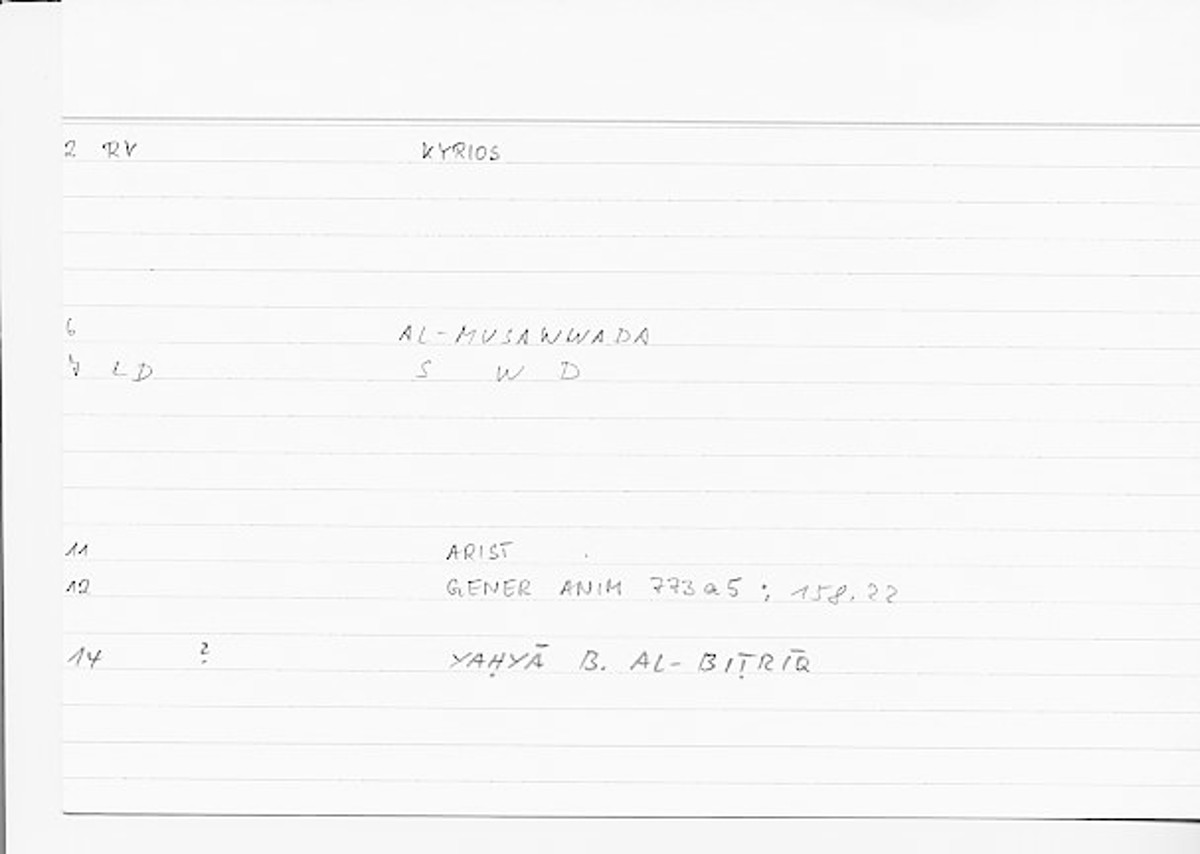 2 RV KYRIOS
6 AL-MUSAWWADA
7 LD S W D
11 ARIST .
12 GENER ANIM 773a5 ; 158.22
14 ? YAḤYĀ B. AL-BIṬRĪQ